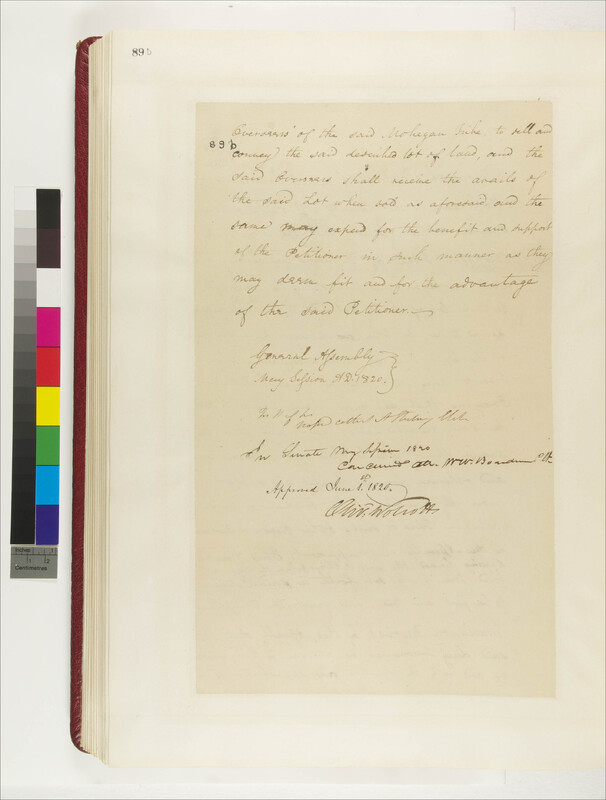 89b
89b
Overseers of the said Mohegan tribe to sell and
convey the said described lot of land, and the
said Overseers shall receive the avails of
the said Lot when sold as aforesaid and the
same may expend for the benefit and support
of the Petitioner in such manner as they
may deem fit and for the advantage
of the said Petitioner.—
General Assembly
May Session AD. 1820.
In Senate May Session 1820
Concurred Att. W W. Boardman Clk
Approved June 1st 1820.
Oliv. Wolcott
Inches 1 2
Centimetres